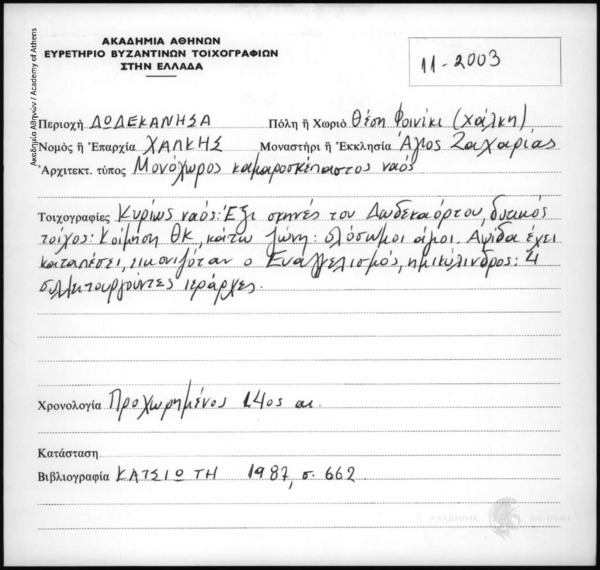 ΑΚΑΔΗΜΙΑ ΑΘΗΝΩΝ
ΕΥΡΕΤΗΡΙΟ ΒΥΖΑΝΤΙΝΩΝ ΤΟΙΧΟΓΡΑΦΙΩΝ
ΣΤΗΝ ΕΛΛΑΔΑ
11-2003
Ακαδημία Αθηνών / Academy of Athens
Περιοχὴ ΔΩΔΕΚΑΝΗΣΑ Πόλη ἢ Χωριὸ Θέση Φοινίκι (Χάλκη)
Νομὸς ἢ Ἐπαρχία ΧΑΛΚΗΣ Μοναστήρι ἢ Ἐκκλησία Άγιος Ζαχαρίας
Ἀρχιτεκτ. τύπος Μονόχωρος καμαροσκέπαστος ναός
Τοιχογραφίες Κυρίως ναός: Έξι σκηνές του Δωδεκαόρτου, δυτικός
τοίχος: Κοίμηση ΘΚ, κάτω ζώνη: ολόσωμοι άγιοι. Αψίδα έχει
καταπέσει, εικονιζόταν ο Ευαγγελισμός, ημικύλινδρος: 4
συλλειτουργούντες ιεράρχες.
Χρονολογία Προχωρημένος 14ος αι.
Κατάσταση
Βιβλιογραφία ΚΑΤΣΙΩΤΗ 1987, σ. 662
ΑΚΑΔΗΜΙΑ ΑΘΗΝΩΝ